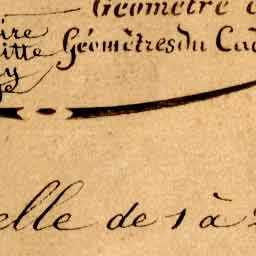 Géomètre
ire
itte Géomètres du Ca
y
elle de 1 à 2